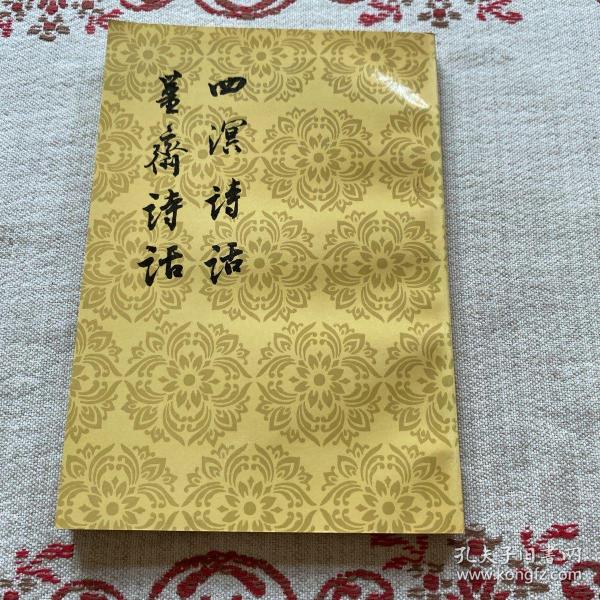 四溟詩話
薑齋詩話
孔夫子旧书网
www.kongfz.com